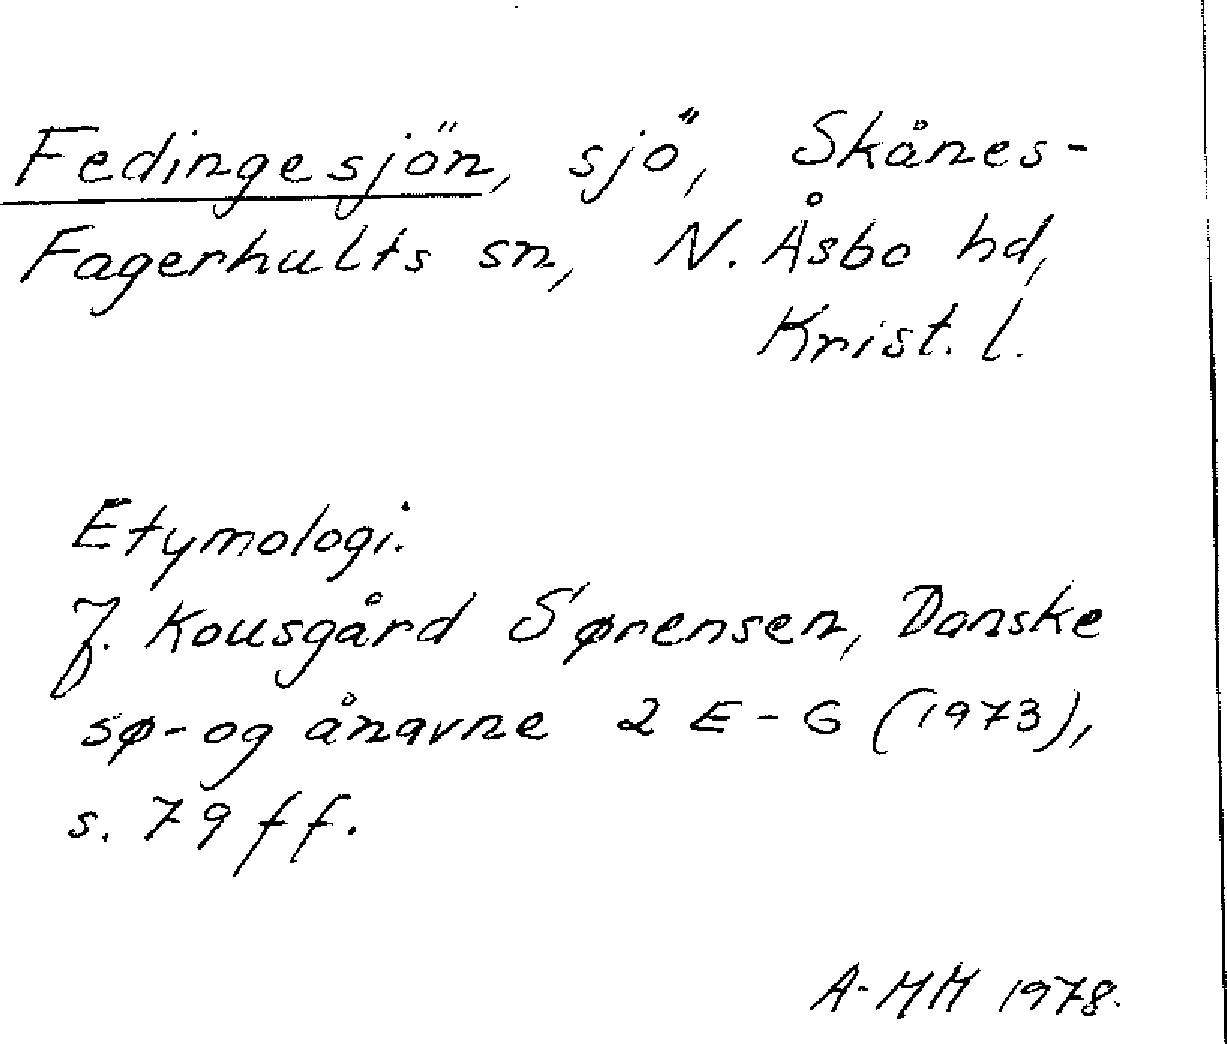 Fedingesjön, sjö, Skånes-
Fagerhults sn, N. Åsbo hd,
Krist. l.
Etymologi.
J. Kousgård Sørensen, Danske
sø- og ånavne 2 E-G (1973),
s. 79 ff.
A-MM 1978.